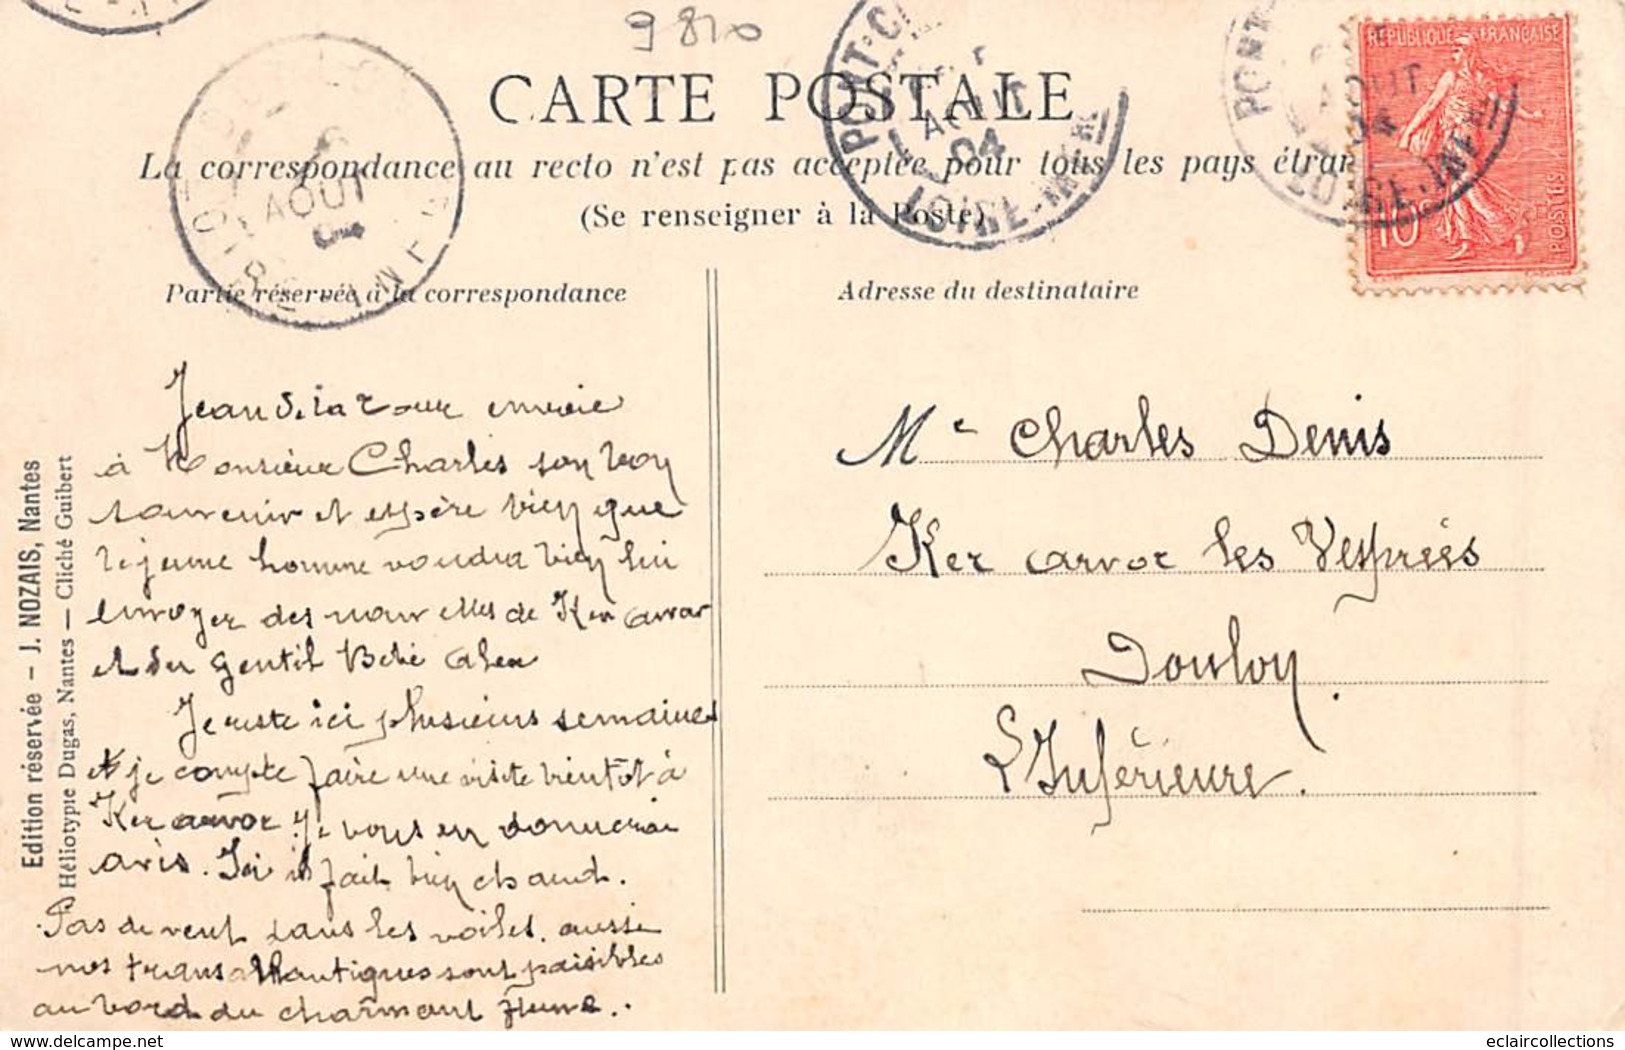 9810
CARTE POSTALE
La correspondance au recto n'est pas acceptée pour tous les pays étran
(Se renseigner à la Poste)
Partie réservée à la correspondance
Adresse du destinataire
REPUBLIQUE FRANÇAISE
10
POSTES
PONT-C
AOUT
04
LOIRE-INFRE
PONT
AOUT
04
LOIRE-INFRE
AOUT
04
LOIRE-INF
Jean de la Tour envoie
à Monsieur Charles son bon
souvenir et espère bien que
le jeune homme voudra bien lui
envoyer des nouvelles de Ker arvor
et du gentil Bébé
Je reste ici plusieurs semaines
et je compte faire une visite bientôt à
Ker arvor. Je vous en donnerai
avis. Ici il fait bien chaud.
Pas de vent dans les voiles. aussi
nos transatlantiques sont paisibles
au bord du charmant fleuve..
Mr Charles Denis
Ker arvor les Vesprées
Doulon
L Inférieure.
Edition réservée - J. NOZAIS, Nantes
Héliotypie Dugas, Nantes — Cliché Guibert
eclaircollections